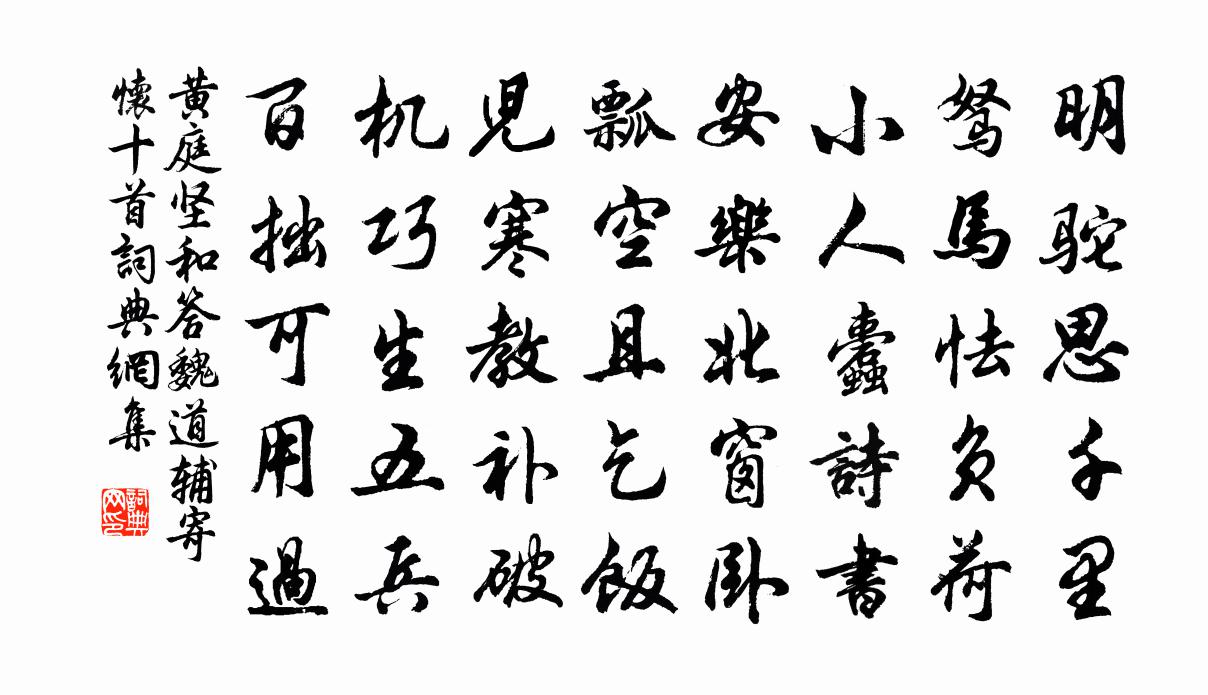 明駝思千里
駑馬怯负荷
小人蠹詩書
安樂北窗卧
瓢空且乞飯
児寒教补破
机巧生五兵
百拙可用過
黄庭坚和答魏道辅寄
懷十首詞典網集
詞典网印